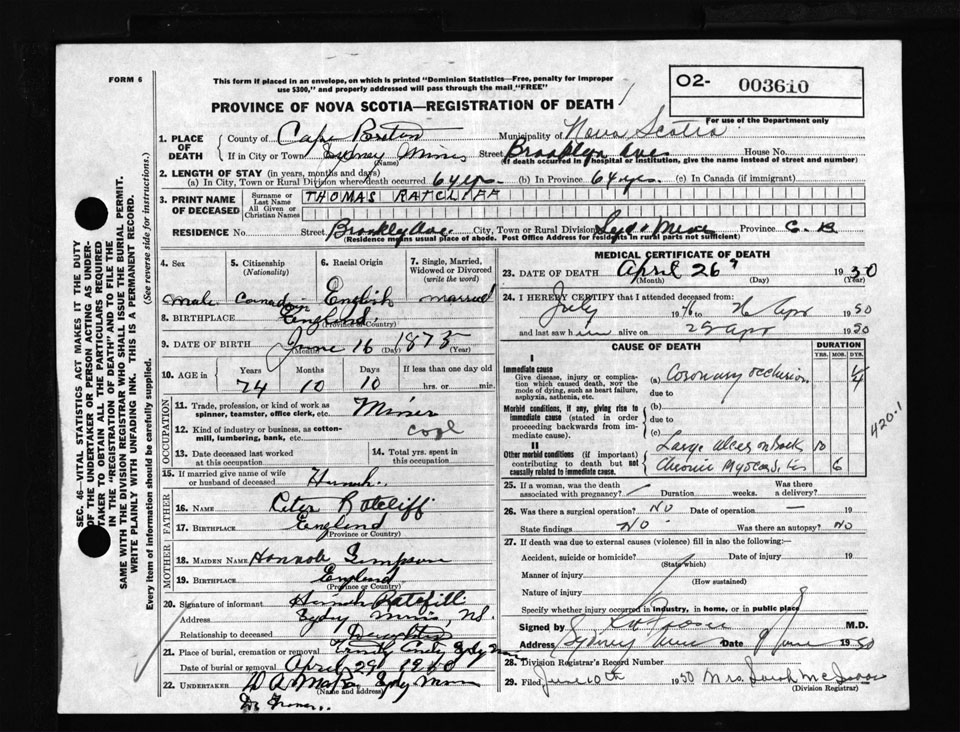 FORM 6
This form if placed in an envelope, on which is printed "Dominion Statistics—Free, penalty for improper
use $300," and properly addressed will pass through the mail "FREE"
O2- 003610
For use of the Department only
PROVINCE OF NOVA SCOTIA—REGISTRATION OF DEATH
1. PLACE OF DEATH
County of Cape Breton Municipality of Nova Scotia
If in City or Town Sydney Mines (Name) Street Brooklyn Ave House No.
(If death occurred in hospital or institution, give the name instead of street and number)
2. LENGTH OF STAY (in years, months and days)
(a) In City, Town or Rural Division where death occurred 64 yrs. (b) In Province 64 yrs. (c) In Canada (if immigrant)
3. PRINT NAME OF DECEASED
Surname or Last Name THOMAS RATCLIFF
All Given or Christian Names
RESIDENCE No. Street Brooklyn Ave. City, Town or Rural Division Syd. Mines Province C. B
(Residence means usual place of abode. Post Office Address for residents in rural parts not sufficient)
4. Sex
5. Citizenship (Nationality)
6. Racial Origin
7. Single, Married, Widowed or Divorced (write the word)
male Canadian English married
8. BIRTHPLACE England (Province or Country)
9. DATE OF BIRTH June (Month) 16 (Day) 1875 (Year)
10. AGE IN Years Months Days If less than one day old
74 10 10 hrs. or min.
OCCUPATION
11. Trade, profession, or kind of work as spinner, teamster, office clerk, etc. Miner
12. Kind of industry or business, as cotton-mill, lumbering, bank, etc. coal
13. Date deceased last worked at this occupation
14. Total yrs. spent in this occupation
15. If married give name of wife or husband of deceased
FATHER
16. Name Peter Ratcliff
17. BIRTHPLACE England
(Province or Country)
MOTHER
18. MAIDEN NAME Hannah Simpson
19. BIRTHPLACE England
(Province or Country)
20. Signature of informant
Address Sydney Mines, N.S.
Relationship to deceased
21. Place of burial, cremation or removal Trinity
Date of burial or removal April 29 1950
22. UNDERTAKER
(Name and address)
MEDICAL CERTIFICATE OF DEATH
23. DATE OF DEATH April (Month) 26 (Day) 1950 (Year)
24. I HEREBY CERTIFY that I attended deceased from:
July 1946 to 26 Apr 1950
and last saw him alive on 25 Apr 1950
CAUSE OF DEATH
DURATION
YRS. MOS. DYS.
I
Immediate cause
Give disease, injury or complication which caused death, NOT the mode of dying, such as heart failure, asphyxia, asthenia, etc.
(a) Coronary occlusion 1/4
due to
Morbid conditions, if any, giving rise to immediate cause (stated in order proceeding backwards from immediate cause).
(b)
due to
(c)
II
Other morbid conditions (if important) contributing to death but not causally related to immediate cause.
Large ulcer on back 10
Chronic Myocarditis 6
420-1
25. If a woman, was the death associated with pregnancy? Duration weeks. Was there a delivery?
26. Was there a surgical operation? NO Date of operation —
State findings NO Was there an autopsy? NO
27. If death was due to external causes (violence) fill in also the following:—
Accident, suicide or homicide? (State which) Date of injury 19
Manner of injury
(How sustained)
Nature of injury
Specify whether injury occurred in industry, in home, or in public place
Signed by M.D.
Address Sydney Mines Date 9 June 1950
28. Division Registrar's Record Number
29. Filed June 10th 1950 Mrs. Sarah McIsaac
(Division Registrar)
SEC. 46—VITAL STATISTICS ACT MAKES IT THE DUTY
OF THE UNDERTAKER OR PERSON ACTING AS UNDER-
TAKER TO OBTAIN ALL THE PARTICULARS REQUIRED
IN THE "REGISTRATION OF DEATH" AND TO FILE THE
SAME WITH THE DIVISION REGISTRAR WHO SHALL ISSUE THE BURIAL PERMIT.
WRITE PLAINLY WITH UNFADING INK. THIS IS A PERMANENT RECORD.
Every item of information should be carefully supplied. (See reverse side for instructions.)